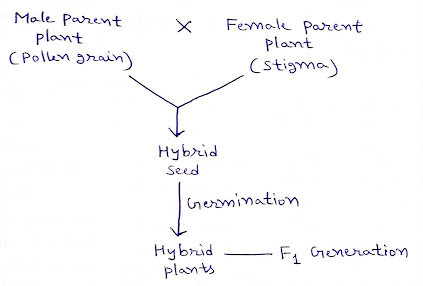 Male Parent
plant
(Pollen grain)
×
Female Parent
plant
(Stigma)
Hybrid
Seed
Germination
Hybrid
plants
F₁ Generation